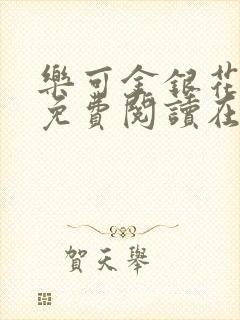 樂可金銀花
免費閱讀在
賀天舉